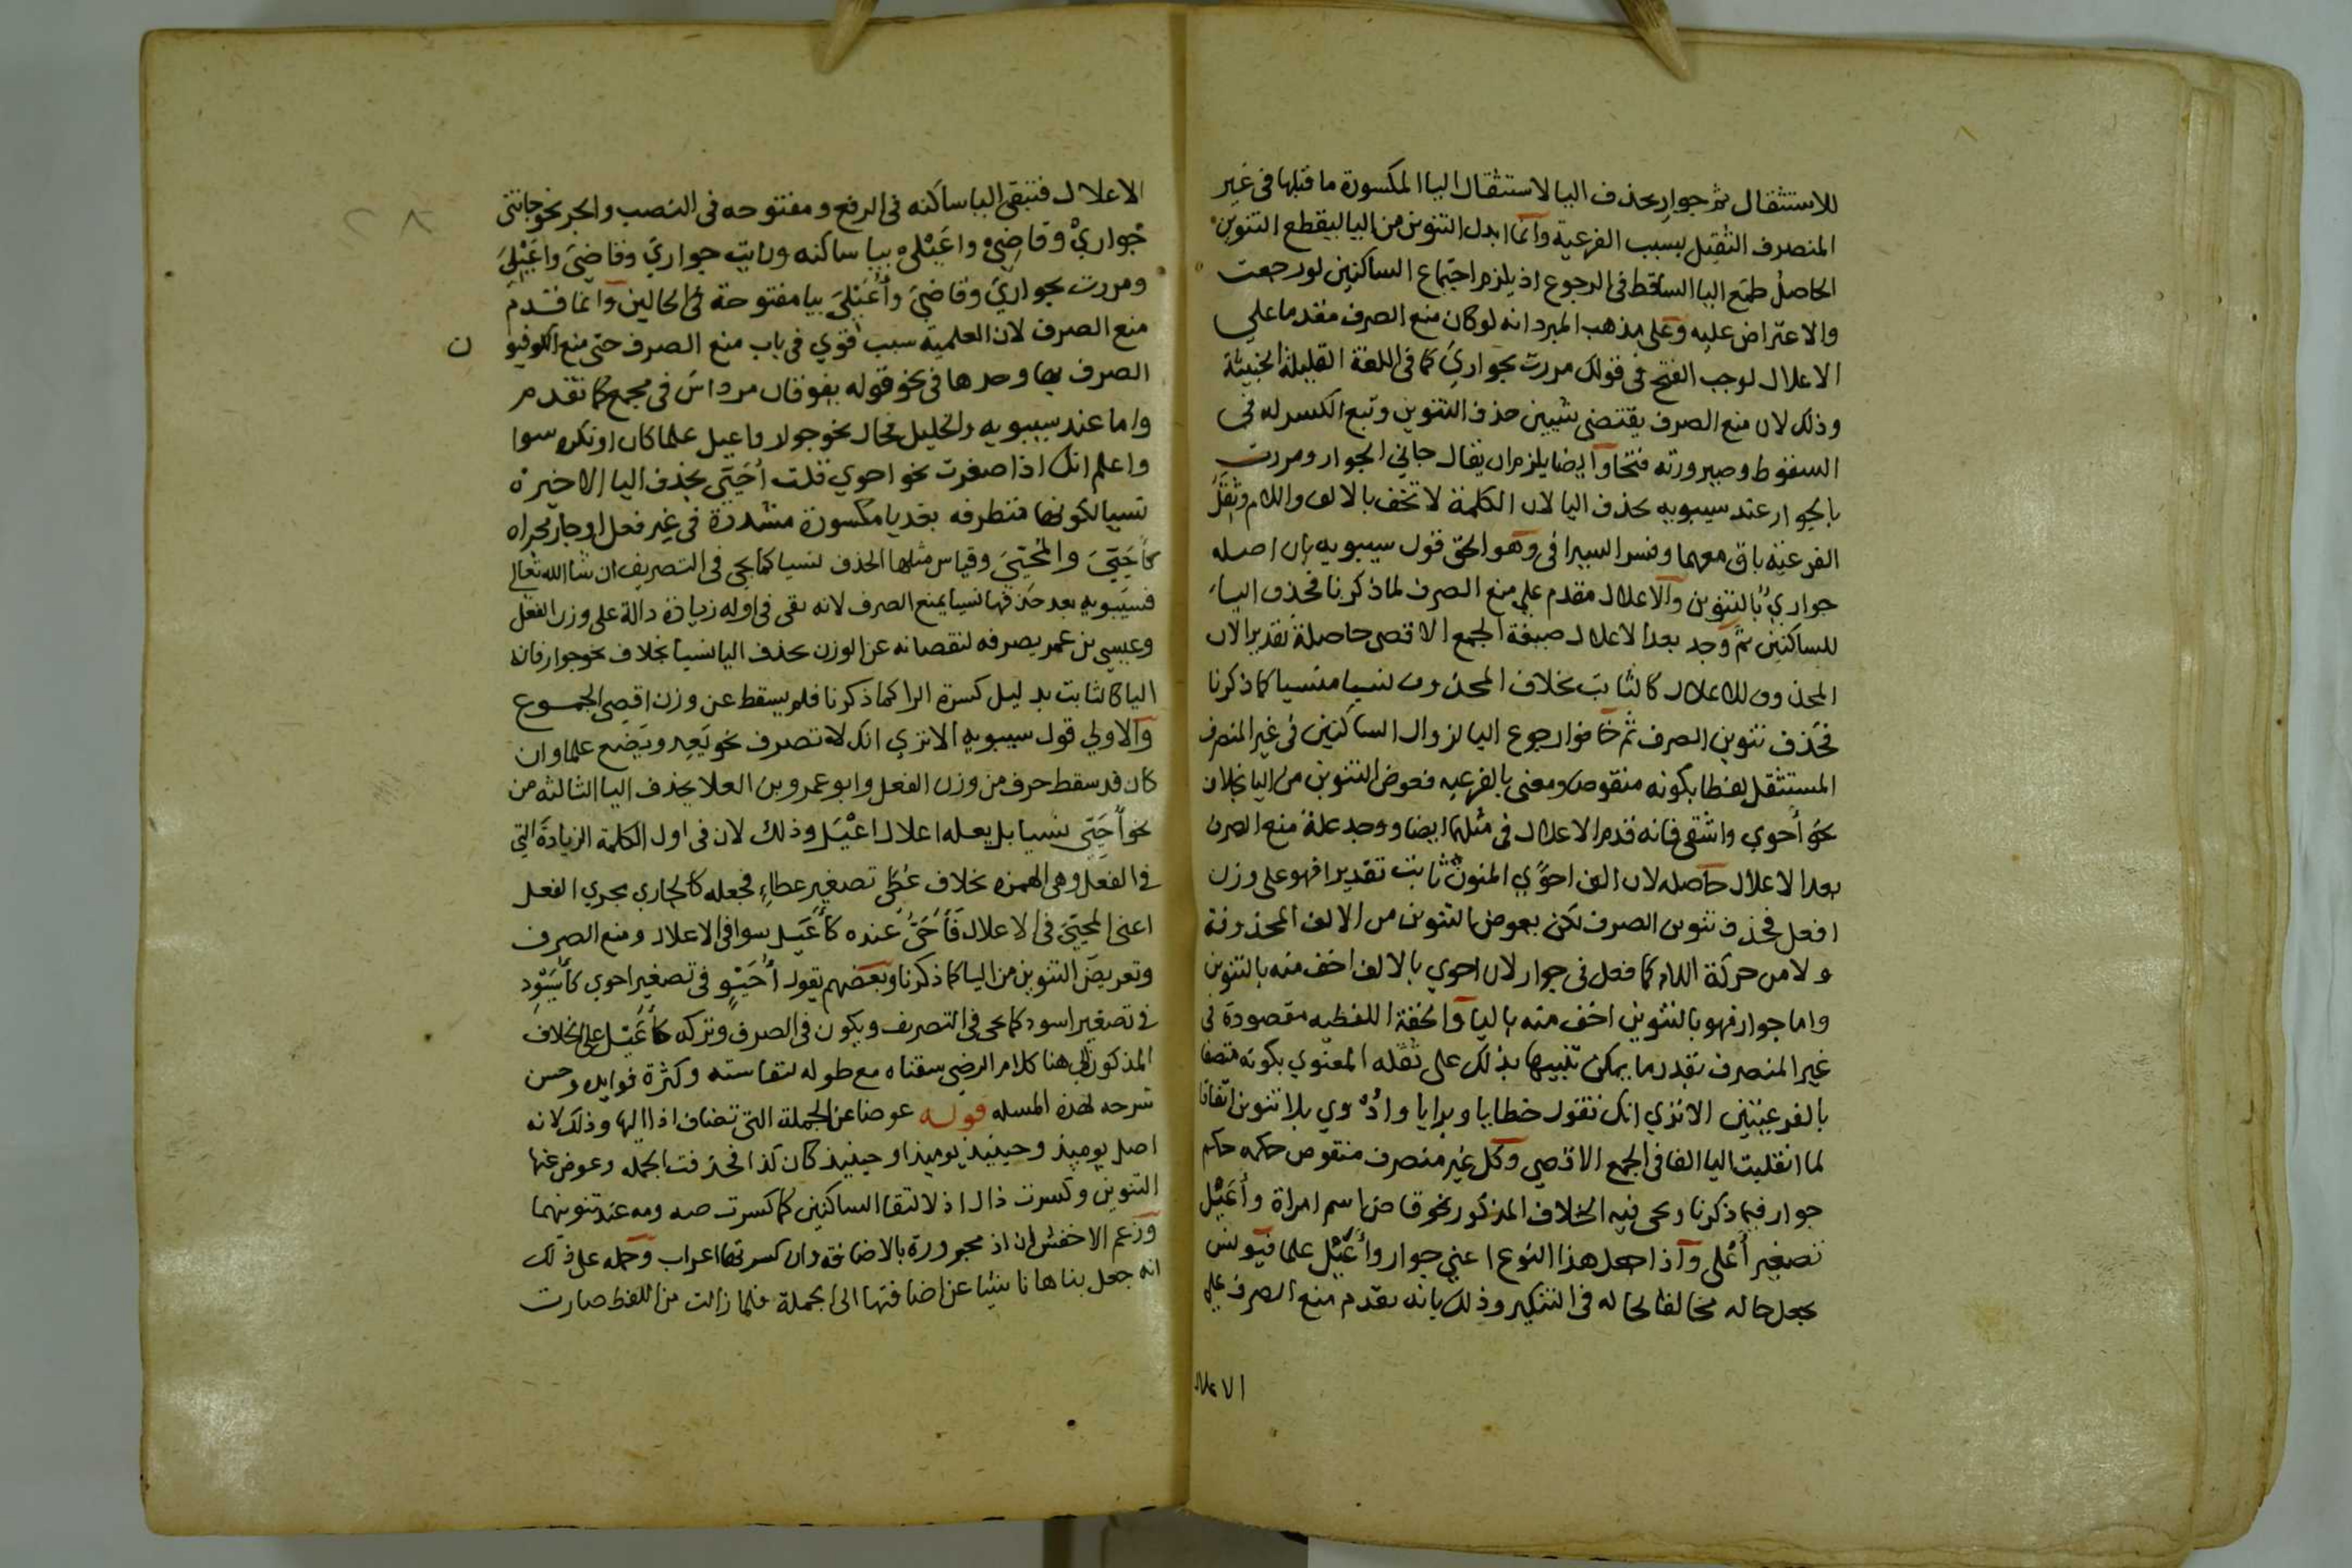 للاستثقال ثم جوارٍ بحذف اليا لاستثقال اليا المكسورة ما قبلها فى غير
المنصرف الثقيل بسبب الفرعية وانما ابدل التنوين من اليا ليقطع التنوين
الحاصل طمع اليا الساقط فى الرجوع اذ يلزم اجتماع الساكنين لو رجعت
والاعتراض عليه وعلى مذهب المبرد انه لو كان منع الصرف مقدما علي
الاعلال لوجب الفتح فى قولك مررت بجواري كما فى اللغة القليلة الخبيثة
وذلك لان منع الصرف يقتضى شيين حذف التنوين وتبع الكسر له فى
السقوط وصيرورته فتحا وايضا يلزم ان يقال جاني الجوار ومررت
بالجوار عند سيبويه بحذف اليا لان الكلمة لا تخف بالالف واللام وثقل
الفرعيه باق معهما وفسر السيرافى وهو الحق قول سيبويه بان اصله
جواري بالتنوين والاعلال مقدم على منع الصرف لما ذكرنا فحذف اليا
للساكنين ثم وجد بعد الاعلال صيغة الجمع الاقصى حاصلة تقديرا لان
المحذوف للاعلال كالثابت بخلاف المحذوف لنسيا منسيا كما ذكرنا
فحذف تنوين الصرف ثم خافوا رجوع اليا لزوال الساكنين فى غير المنصرف
المستثقل لفظا بكونه منقوصا ومعنى بالفرعيه فعوض التنوين من اليا بخلاف
نحو أحوي واشقى فانه قدم الاعلال فى مثلهما ايضا ووجد علة منع الصرف
بعد الاعلال حاصله لان الف احوًي المنون ثابت تقديرا فهو على وزن
افعل فحذف تنوين الصرف لكن بعوض التنوين من الالف المحذوفة
ولا من حركة اللام كما فعل فى جوار لان احوي بالالف اخف منه بالتنوين
واما جوار فهو بالتنوين اخف منه باليا والخفة اللفظيه مقصودة فى
غير المنصرف بقدر ما يمكن تنبيها بذلك على ثقله المعنوي بكونه متصفا
بالفرعيتين الا تري انك تقول خطايا وبرايا وادوي بلا تنوين اتفاقا
لما انقلبت اليا الفا فى الجمع الاقصي وكل غير منصرف منقوص حكمه حكم
جوار فيما ذكرنا ويجى فيه الخلاف المذكور نحو قاض اسم امراة وأعَيْل
تصغير أعْلى واذا جعل هذا النوع اعني جوار وأعَيْل علما فيونس
يجعل حاله مخالفا لحاله فى التنكير وذلك بانه يقدم منع الصرف علي
الاعلال
الاعلال فتبقى اليا ساكنه فى الرفع ومفتوحه فى النصب والجر نحو جاتنى
جواريْ وقاضِيْ واعَيْليْ بيا ساكنه ورايت جواريَ وقاضيَ واعَيْليَ
ومررت بجواريَ وقاضيَ وأعَيْليَ بيا مفتوحة فى الحالين وانما قدم
منع الصرف لان العلمية سبب قوي فى باب منع الصرف حتى منع الكوفيو ن
الصرف بها وحدها فى نحو قوله يفوقان مرداس فى مجمع كما تقدم
واما عند سيبويه والخليل فحال نحو جوار واعيل علما كان او نكره سوا
واعلم انك اذا صغرت نحو احوي قلت أحَيّي بحذف اليا الاخيرة
نسيا لكونها متطرفه بعد يا مكسورة مشددة فى غير فعل او جار مجراه
كأحَيّيَ والمُحَيّيَ وقياس مثلها الحذف نسيا كما يجى فى التصريف ان شا الله تعالي
فسيبويه بعد حذفها نسيا يمنع الصرف لانه بقى فى اوله زيادة دالة على وزن الفعل
وعيسى بن عمر يصرفه لنقصانه عن الوزن بحذف اليا نسيا بخلاف نحو جوار فان
اليا كالثابت بدليل كسرة الرا كما ذكرنا فلم يسقط عن وزن اقصى الجموع
والاولي قول سيبويه الا تري انك لا تصرف نحو يَعِد ويَضع علما وان
كان قد سقط حرف من وزن الفعل وابو عمرو بن العلا يحذف اليا الثالثه من
نحو أحَيّي نسيا بل يعله اعلال اعَيْل وذلك لان فى اول الكلمة الزيادة التي
فى الفعل وهى الهمزه بخلاف عُطَي تصغير عطاءِ فجعله كالجاري مجري الفعل
اعنى المحيّي فى الاعلال فأحَيّ عنده كأعَيل سوا فى الاعلال ومنع الصرف
وتعريض التنوين من اليا كما ذكرنا وبعضهم يقول أحَيْوٍ فى تصغير احوي كأسَيْوِد
فى تصغير اسود كما يجى فى التصريف ويكون فى الصرف وتركه كأعَيْل على الخلاف
المذكور الى هنا كلام الرضى سقناه مع طوله لنفاسته وكثرة فوايده وحسن
شرحه لهذه المسله قوله عوضا عن الجملة التى تضاف اذ اليها وذلك لانه
اصل يوميذ وحينيذ يوميذ او حينيذ كان كذا فحذفت الجمله وعوض عنها
التنوين وكسرت ذال اذ لالتقا الساكنين كما كسرت صه ومه عند تنوينهما
وزعم الاخفش ان اذ مجرورة بالاضافة وان كسرتها اعراب وحمله على ذلك
انه جعل بناها ناشيا عن اضافتها الى الجملة فلما زالت من اللفظ صارت